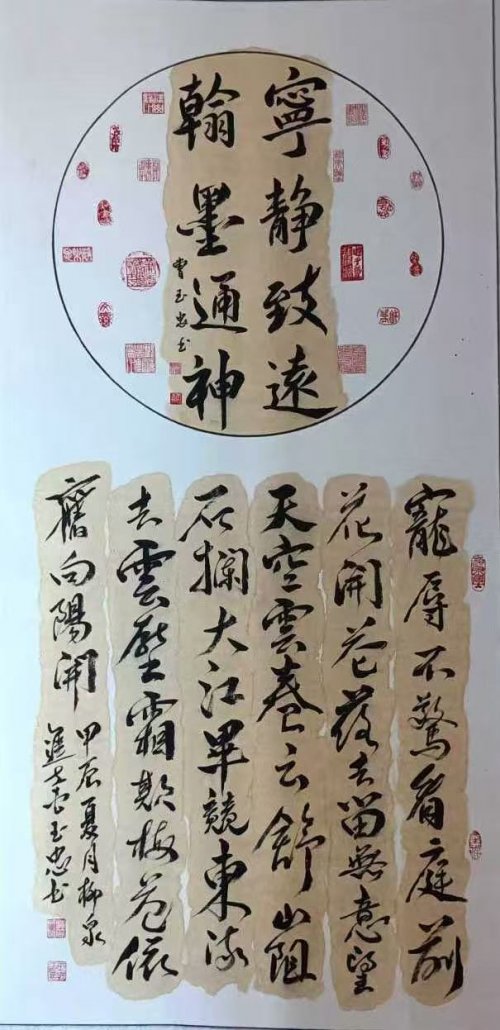 寧静致遠
翰墨通神
曹玉忠书
寵辱不驚看庭前
花開花落去留無意望
天空雲卷云舒山阻
石攔大江畢競東流
去雲壓霜欺梅花依
舊向陽開
甲辰夏月柳泉
曹玉忠书